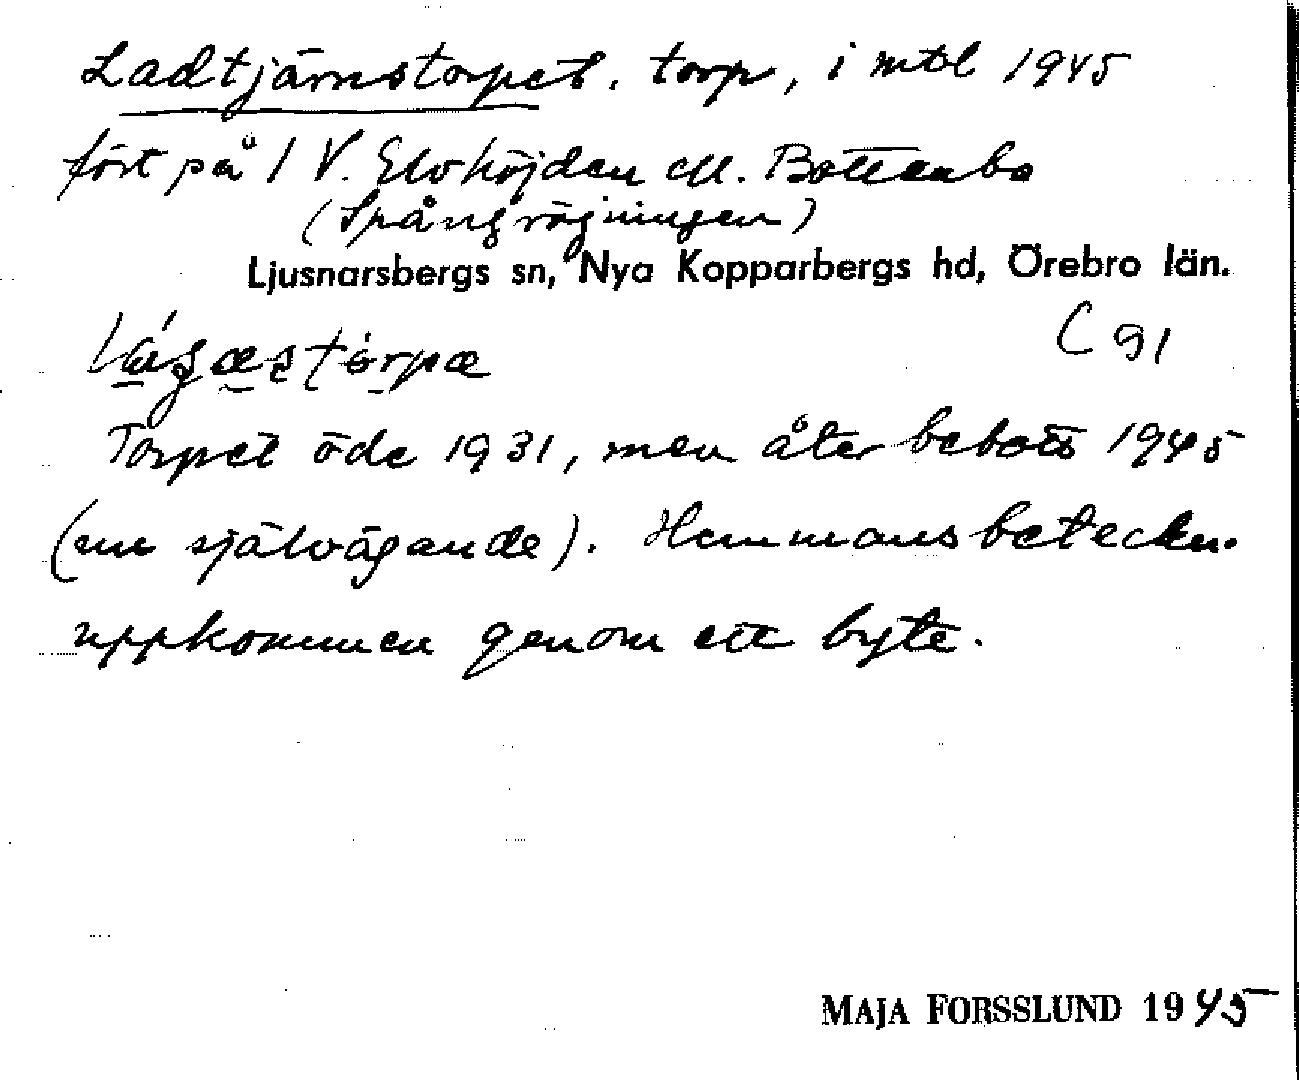 Ladtjärnstorpet, torp, i mtl 1945
fört på 1 V. Elvhöjden ell. Bottenbo
(Spångröjningen)
Ljusnarsbergs sn, Nya Kopparbergs hd, Örebro län.
C 91
Torpet öde 1931, men åter bebott 1945
(nu självägande). Hemmansbeteckn.
uppkommen genom ett byte.
MAJA FORSSLUND 1945